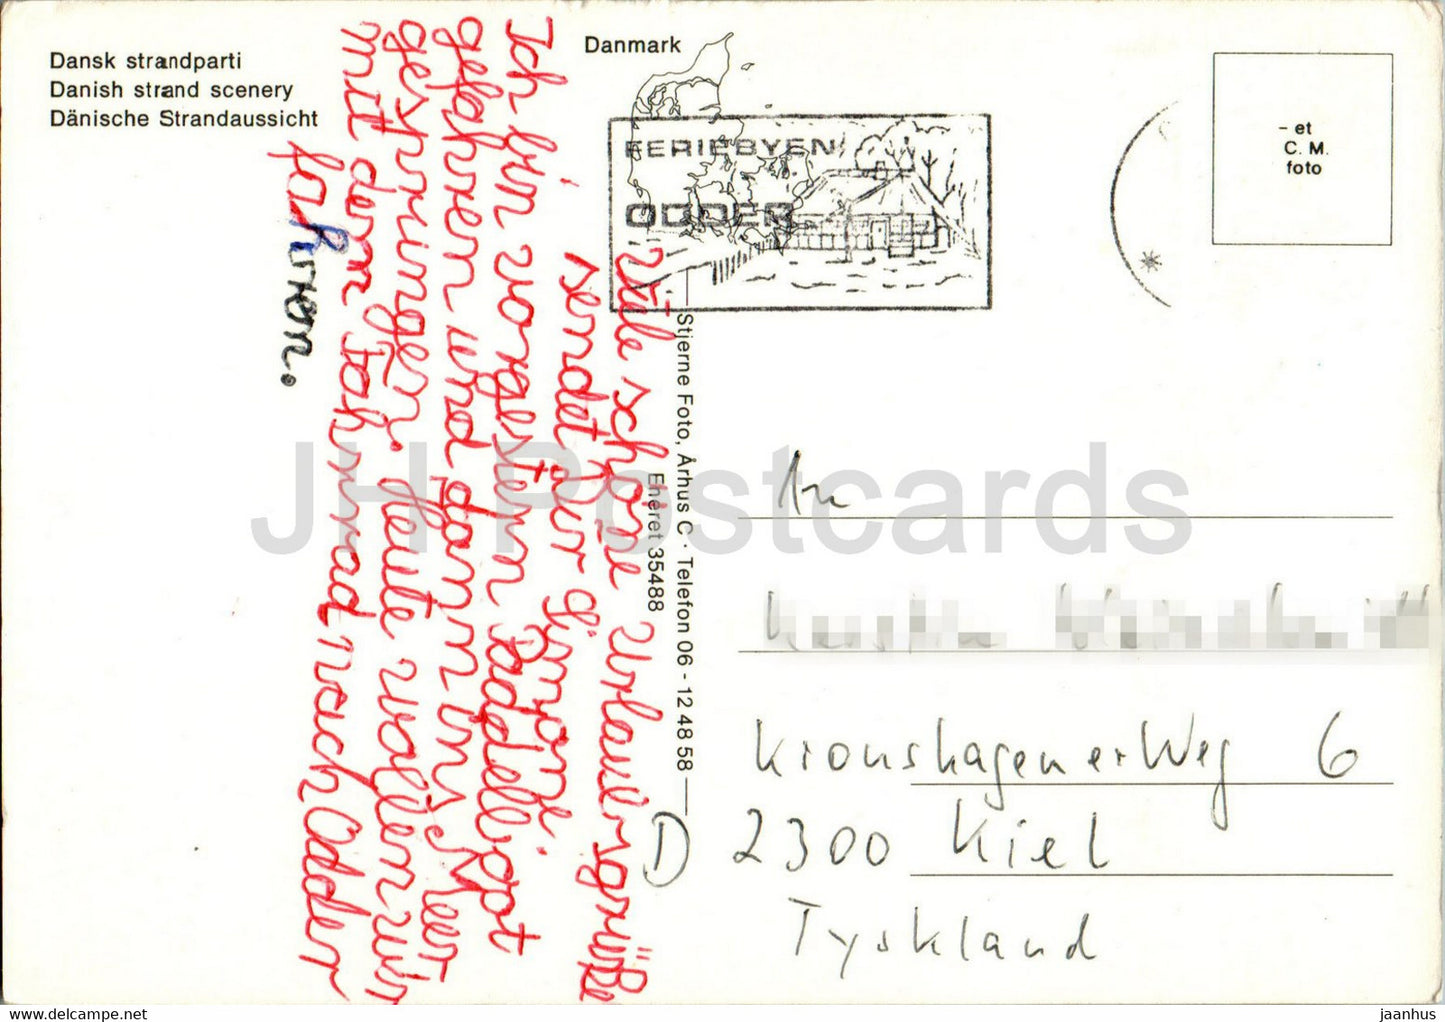 Dansk strandparti
Danish strand scenery
Dänische Strandaussicht
Danmark
FERIEBYEN
ODDER
- et
C. M.
foto
Ich bin vorgestern Paddelboot
gefahren und dann ins Meer
gesprungen. Heute wollen wir
mit dem Fahrrad nach Odder
fahren.
Viele schöne Urlaubsgrüße
sendet dir Simone.
Stjerne Foto, Århus C · Telefon 06 - 12 48 58
Eneret 35488
An
Kronshagener Weg 6
D 2300 Kiel
Tyskland
JH Postcards
www.jhpostcard.com
jaanhus